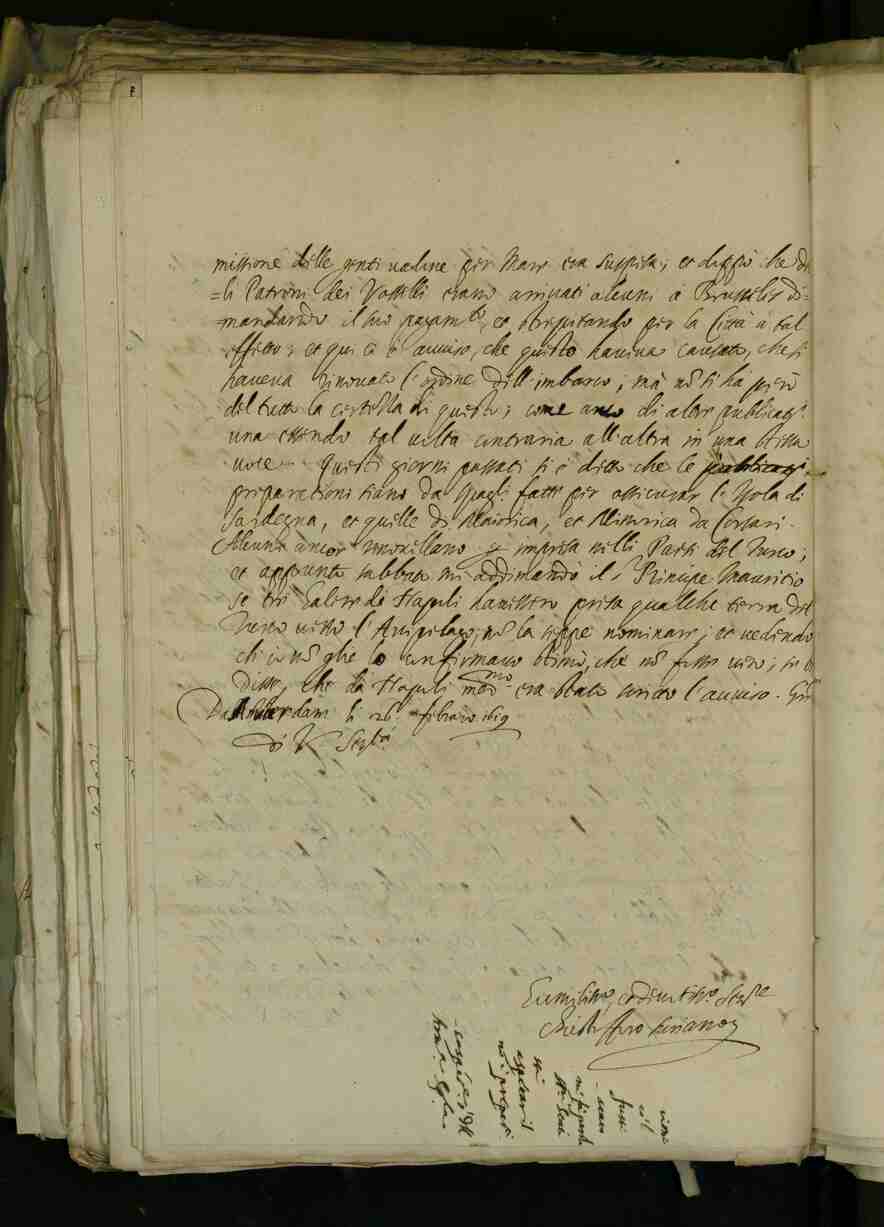 missione delle genti valone per Mare era suspesa; et di più che de
=li Patroni dei Vasselli erano arrivati alcuni à Brusseles di=
=mandando il suo pagam.to, et strepitando per la Città à tal
effetto; et qui ci è avviso, che questo haveva causato, che si
haveva rinovato l'ordine dell'imbarco; mà nõ si ha però
del tutto la certezza di questo; come anco di altre
una essendo tal volta contraria all'altra in una stessa
voce. Questi giorni passati si è detto che le
preparationi siano da Spag.li fatte per assicurar l'Isola di
Sardegna, et quelle di Maiorica, et Minorica da Corsari.
Alcuni ancor impresa nelli Paesi del Turco;
et appunto sabbato mi addimandò il S.r Principe Mauritio
se tre Galere de Napoli havessero presa qualche terra del
Turco verso l'Arcipelago, nõ la seppe nominare; et vedendo
ch'io nõ ghe lo confirmavo stimò, che nõ fusse vero; se b
disse, che da Napoli med.mo era stato scritto l'avviso. Gra
Da Amsterdam li 26 febraro 1619
di V. Ser.tà
Humiliss.o, et devotiss.o Ser.re
Christofforo Suriano